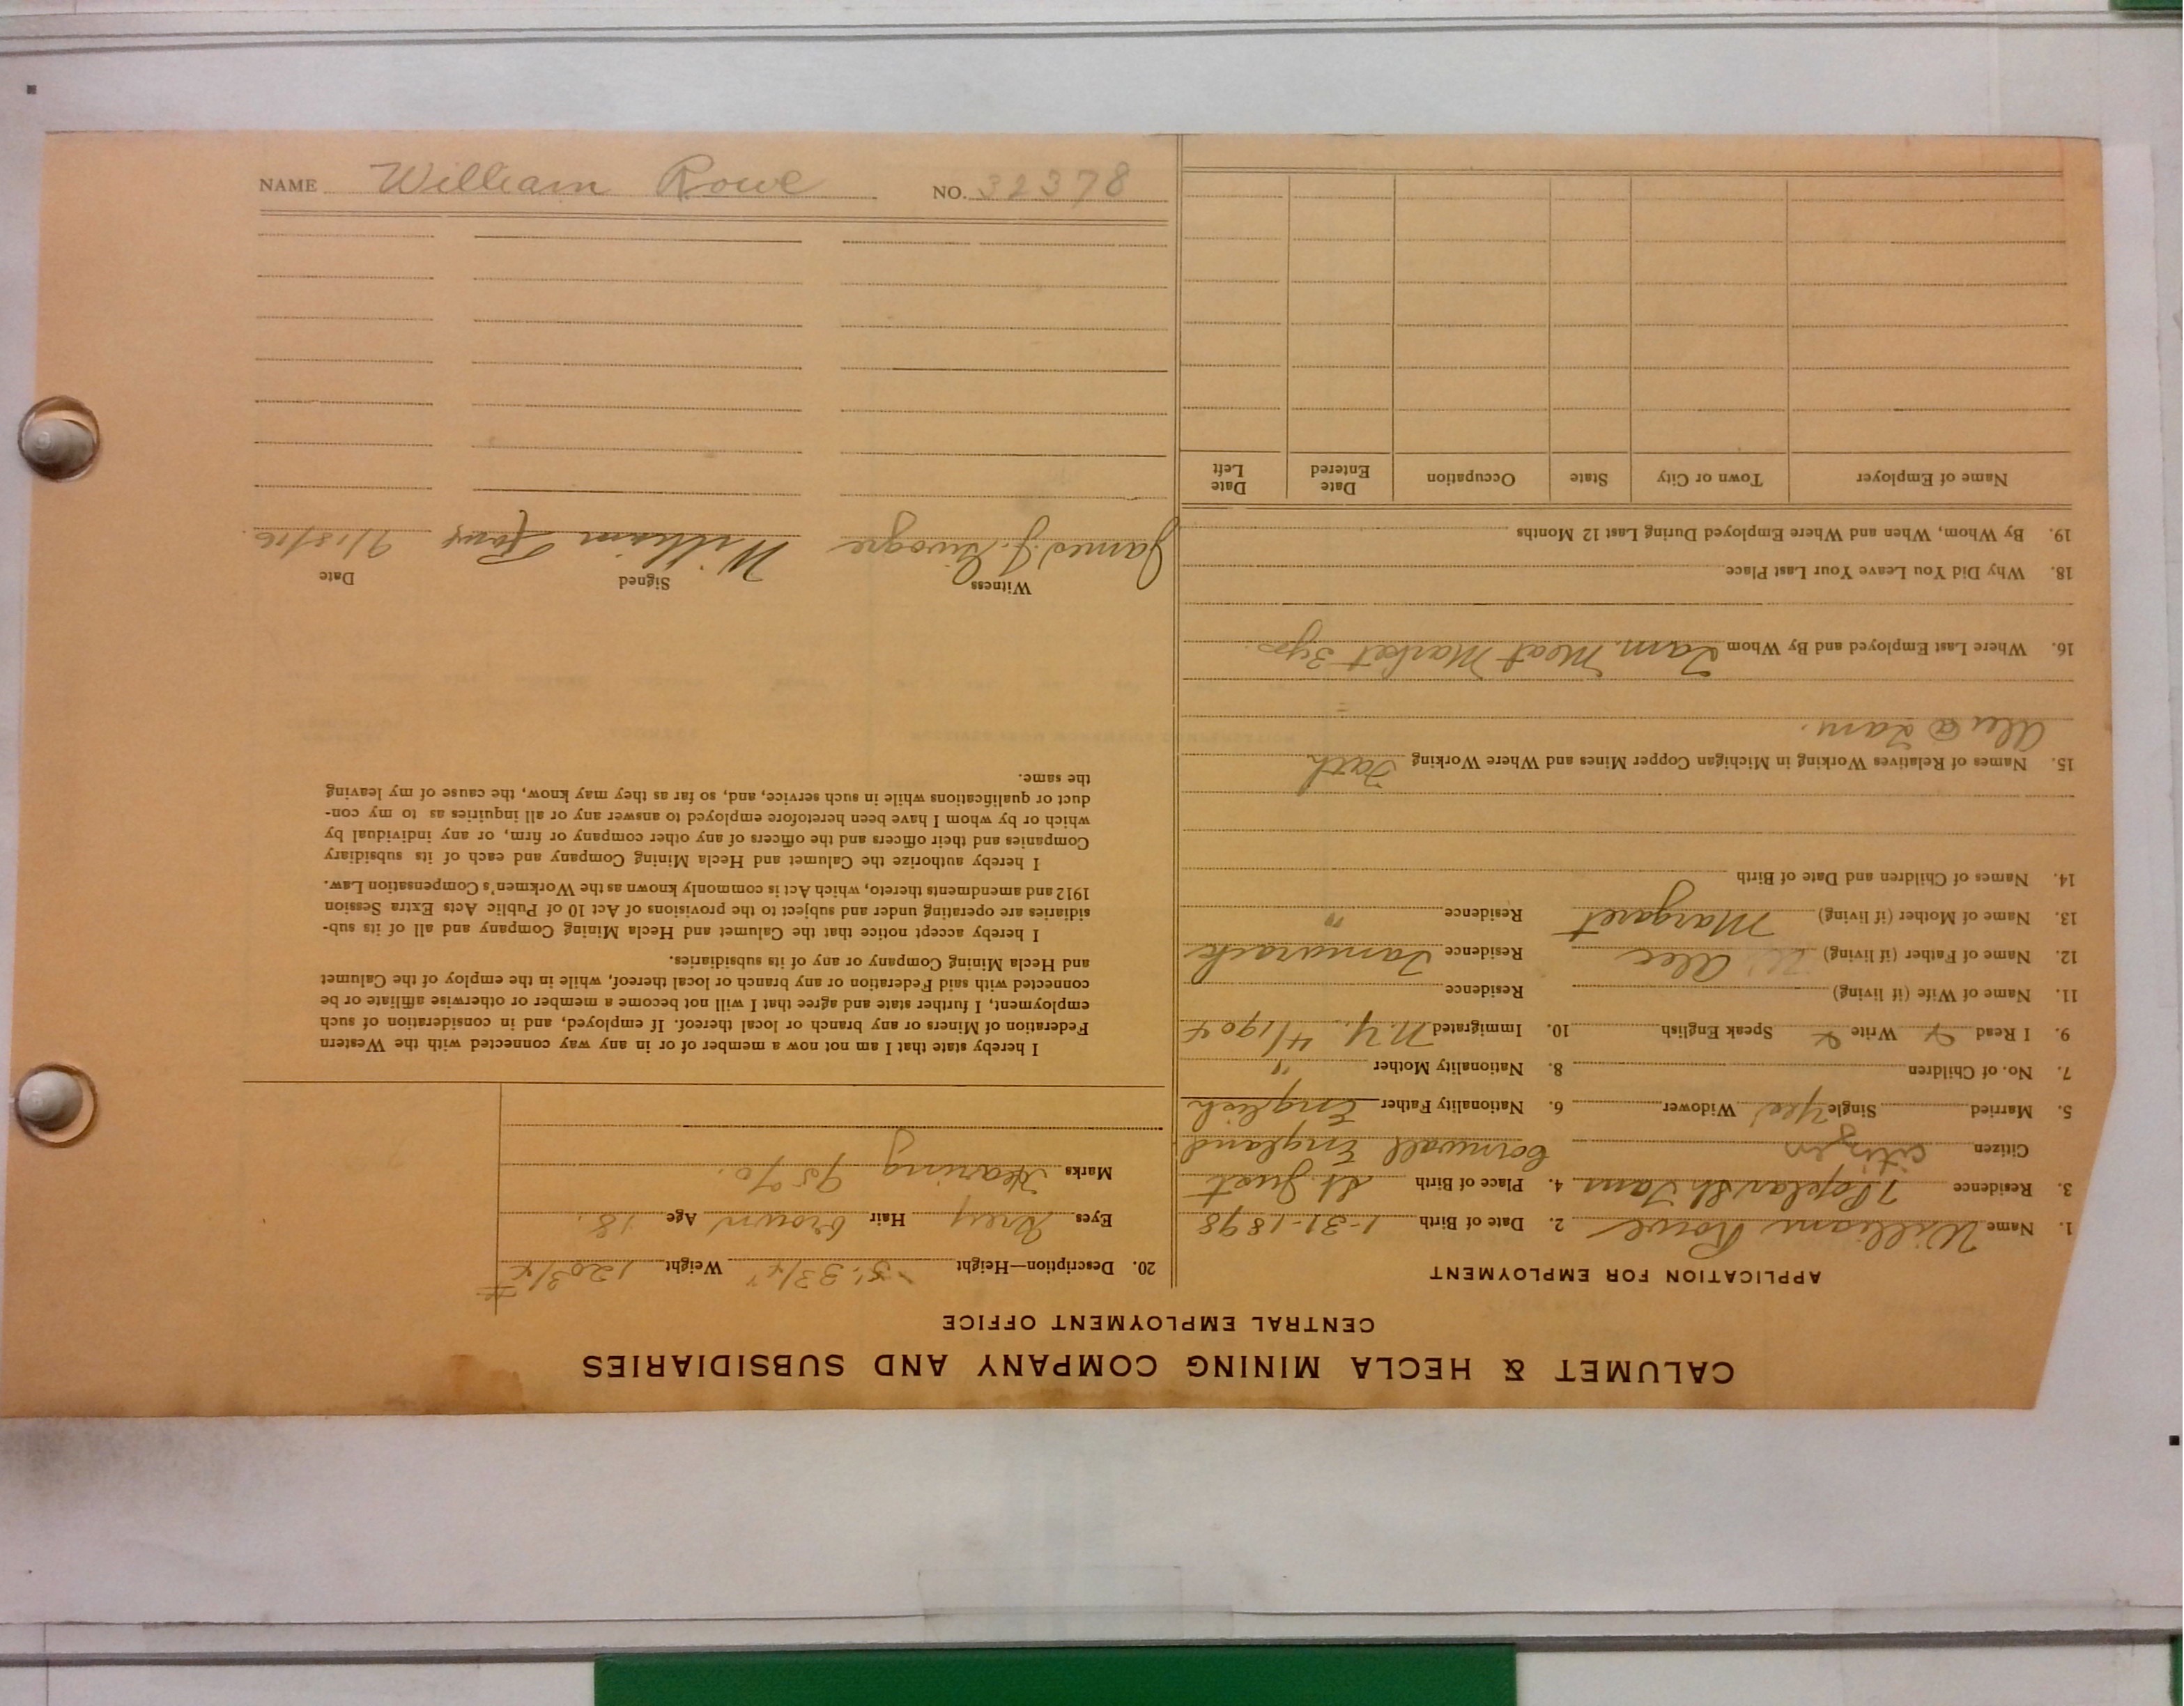 CALUMET & HECLA MINING COMPANY AND SUBSIDIARIES
CENTRAL EMPLOYMENT OFFICE
APPLICATION FOR EMPLOYMENT
1. Name William Rowe 2. Date of Birth 1-31-1898
3. Residence 7 Poplar St Tam 4. Place of Birth St. Just
Citizen citizen Cornwall England
5. Married Single Yes Widower 6. Nationality Father English
7. No. of Children 8. Nationality Mother "
9. I Read Write Speak English 10. Immigrated N.Y. 4/1904
11. Name of Wife (if living) Residence
12. Name of Father (if living) Alec Residence Tamarack
13. Name of Mother (if living) Margaret Residence "
14. Names of Children and Date of Birth
15. Names of Relatives Working in Michigan Copper Mines and Where Working Fath
Alec @ Tam.
16. Where Last Employed and By Whom Tam. Meat Market 3yrs.
18. Why Did You Leave Your Last Place
19. By Whom, When and Where Employed During Last 12 Months
Name of Employer Town or City State Occupation Date Entered Date Left
20. Description—Height 5' 3 3/4" Weight 120 3/4 #
Eyes Grey Hair brown Age 18.
Marks Hearing 95%.
I hereby state that I am not now a member of or in any way connected with the Western
Federation of Miners or any branch or local thereof. If employed, and in consideration of such
employment, I further state and agree that I will not become a member or otherwise affiliate or be
connected with said Federation or any branch or local thereof, while in the employ of the Calumet
and Hecla Mining Company or any of its subsidiaries.
I hereby accept notice that the Calumet and Hecla Mining Company and all of its sub-
sidiaries are operating under and subject to the provisions of Act 10 of Public Acts Extra Session
1912 and amendments thereto, which Act is commonly known as the Workmen's Compensation Law.
I hereby authorize the Calumet and Hecla Mining Company and each of its subsidiary
Companies and their officers and the officers of any other company or firm, or any individual by
which or by whom I have been heretofore employed to answer any or all inquiries as to my con-
duct or qualifications while in such service, and, so far as they may know, the cause of my leaving
the same.
Witness Signed Date
James J. William Rowe 9/18/16.
NAME William Rowe NO. 32378